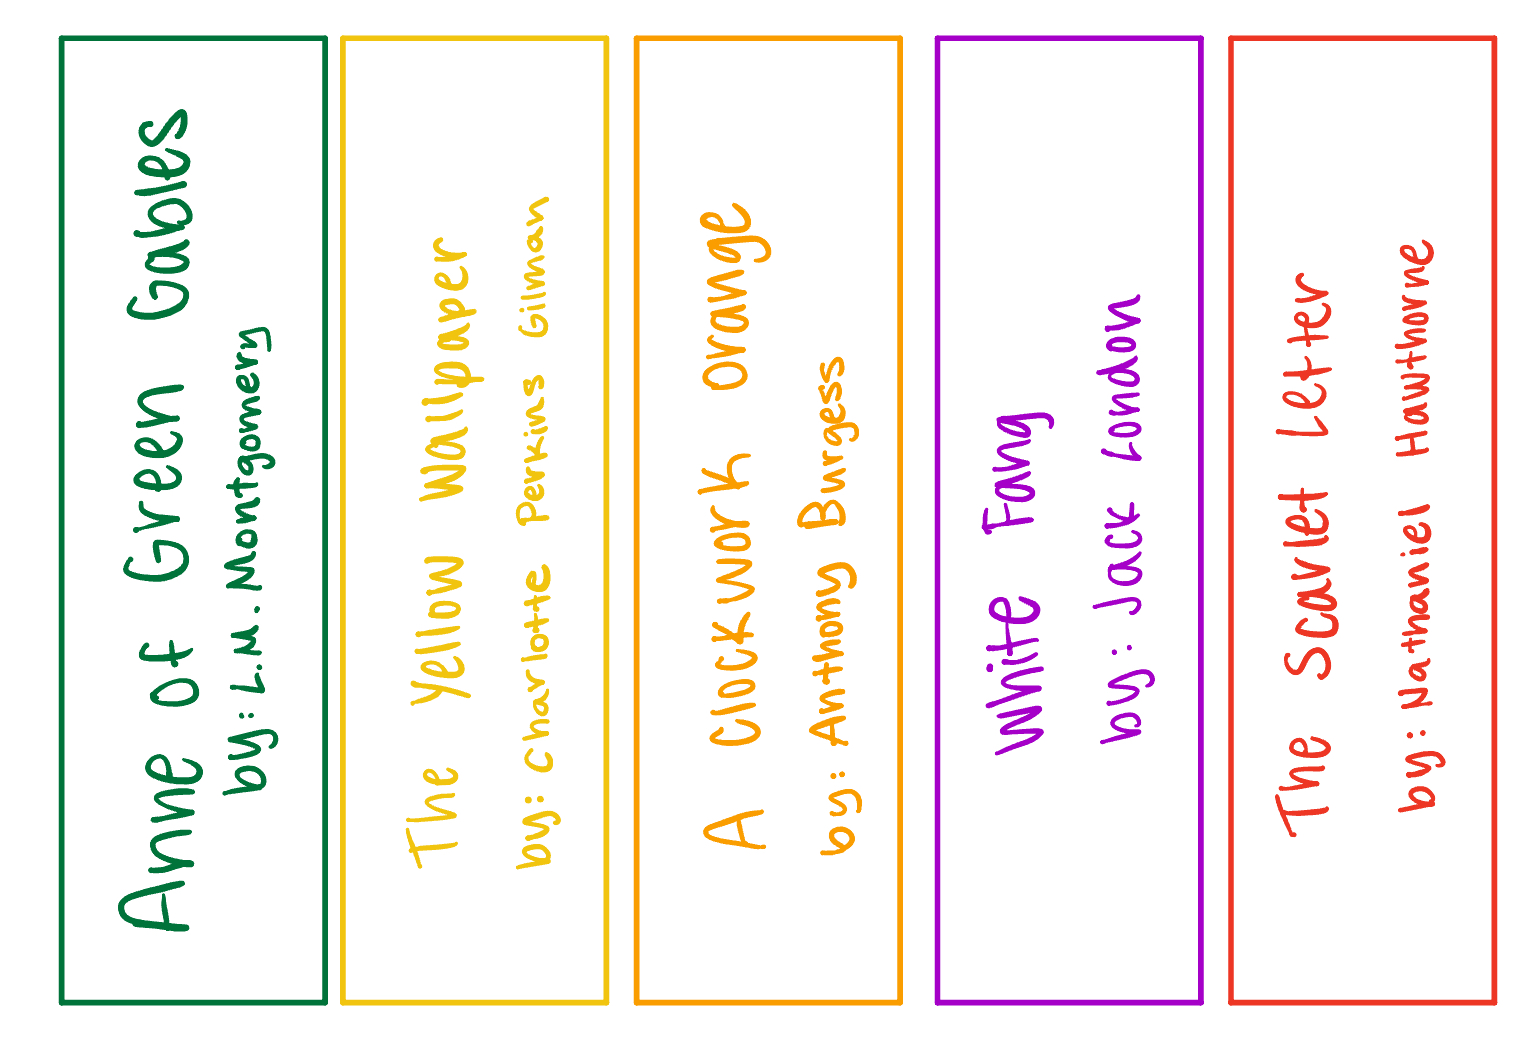 Anne of Green Gables
by: L.M. Montgomery
The Yellow Wallpaper
by: Charlotte Perkins Gilman
A Clockwork Orange
by: Anthony Burgess
White Fang
by: Jack London
The Scarlet Letter
by: Nathaniel Hawthorne